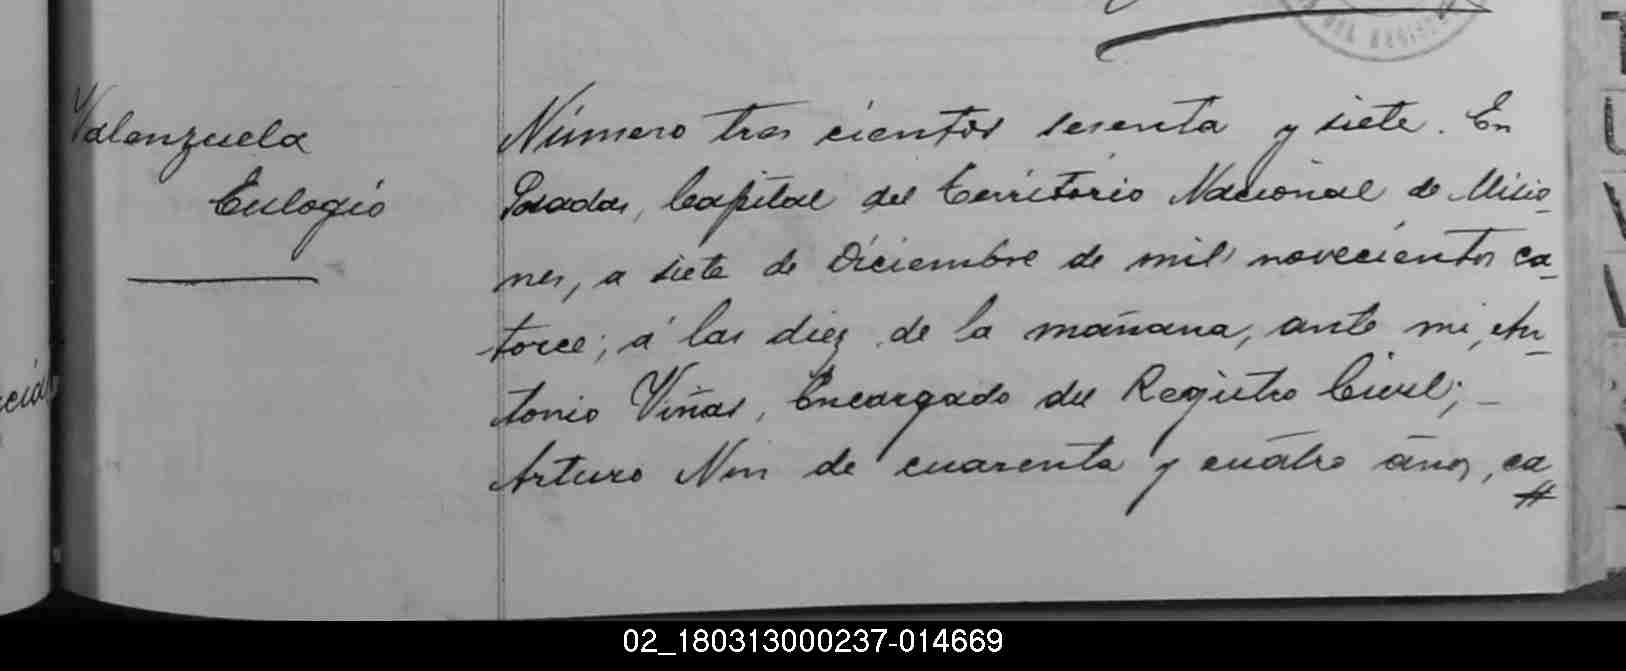 DEL REGIS
Valenzuela
Eulogio
Número tres cientos sesenta y siete. En
Posadas, Capital del Territorio Nacional de Misio_
nes, a siete de Diciembre de mil novecientos ca_
torce; á las diez de la mañana, ante mi, An_
tonio Viñas, Encargado del Registro Civil; _
Arturo Nin de cuarenta y cuatro años, ca
cia
02_180313000237-014669